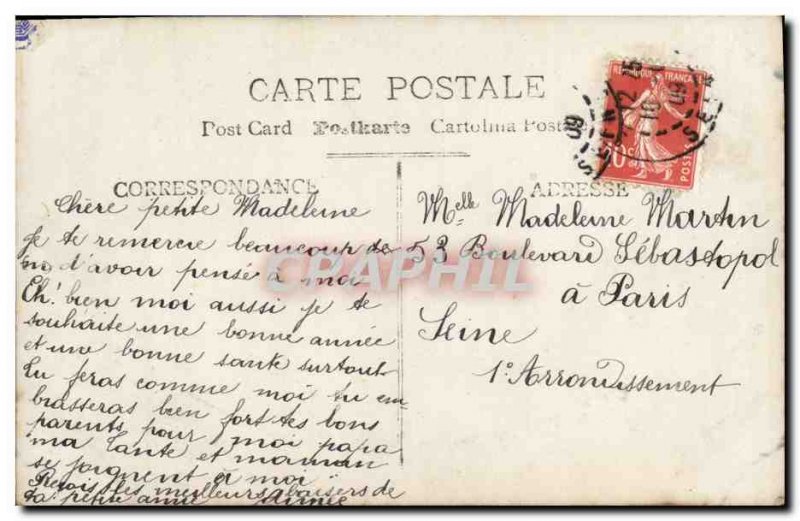 CARTE POSTALE
Post Card Postkarte Cartolina Posta
CORRESPONDANCE
Chère petite Madeleine
Je te remercie beaucoup de
d'avoir pensé à moi
Eh! bien moi aussi je te
souhaite une bonne année
et une bonne sante surtout
tu feras comme moi tu em
brasseras bien fort tes bons
parents pour moi papa
ma tante et maman
se joignent à moi
Reçois les meilleurs baisers de
ta petite amie Aimée
ADRESSE
Melle Madeleine Martin
53 Boulevard Sébastopol
à Paris
Seine
1º Arrondissement
REPUBLIQUE FRANÇAISE
10c POSTES
SEINE
CPAPHIL